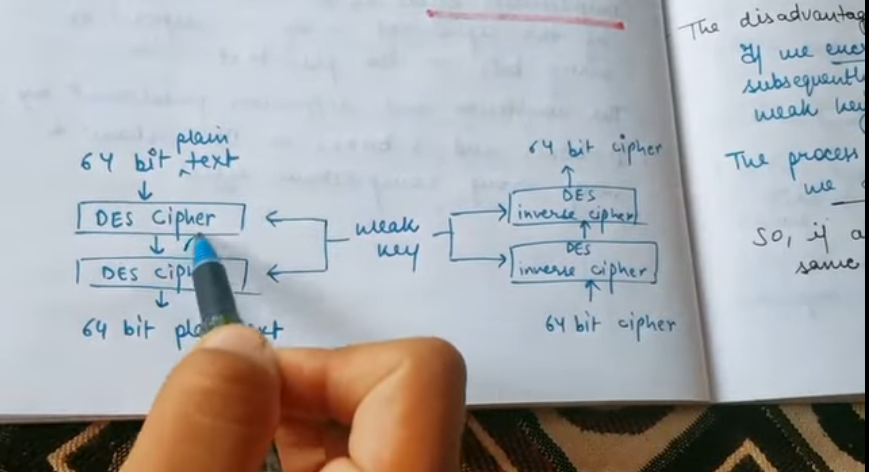 64 bit plain text
DES cipher
DES ciph
64 bit pla xt
weak
key
64 bit cipher
DES
inverse cipher
DES
inverse cipher
64 bit cipher
The disadvantag
If we enc
subsequentl
weak key
The process
we
So, if a
same